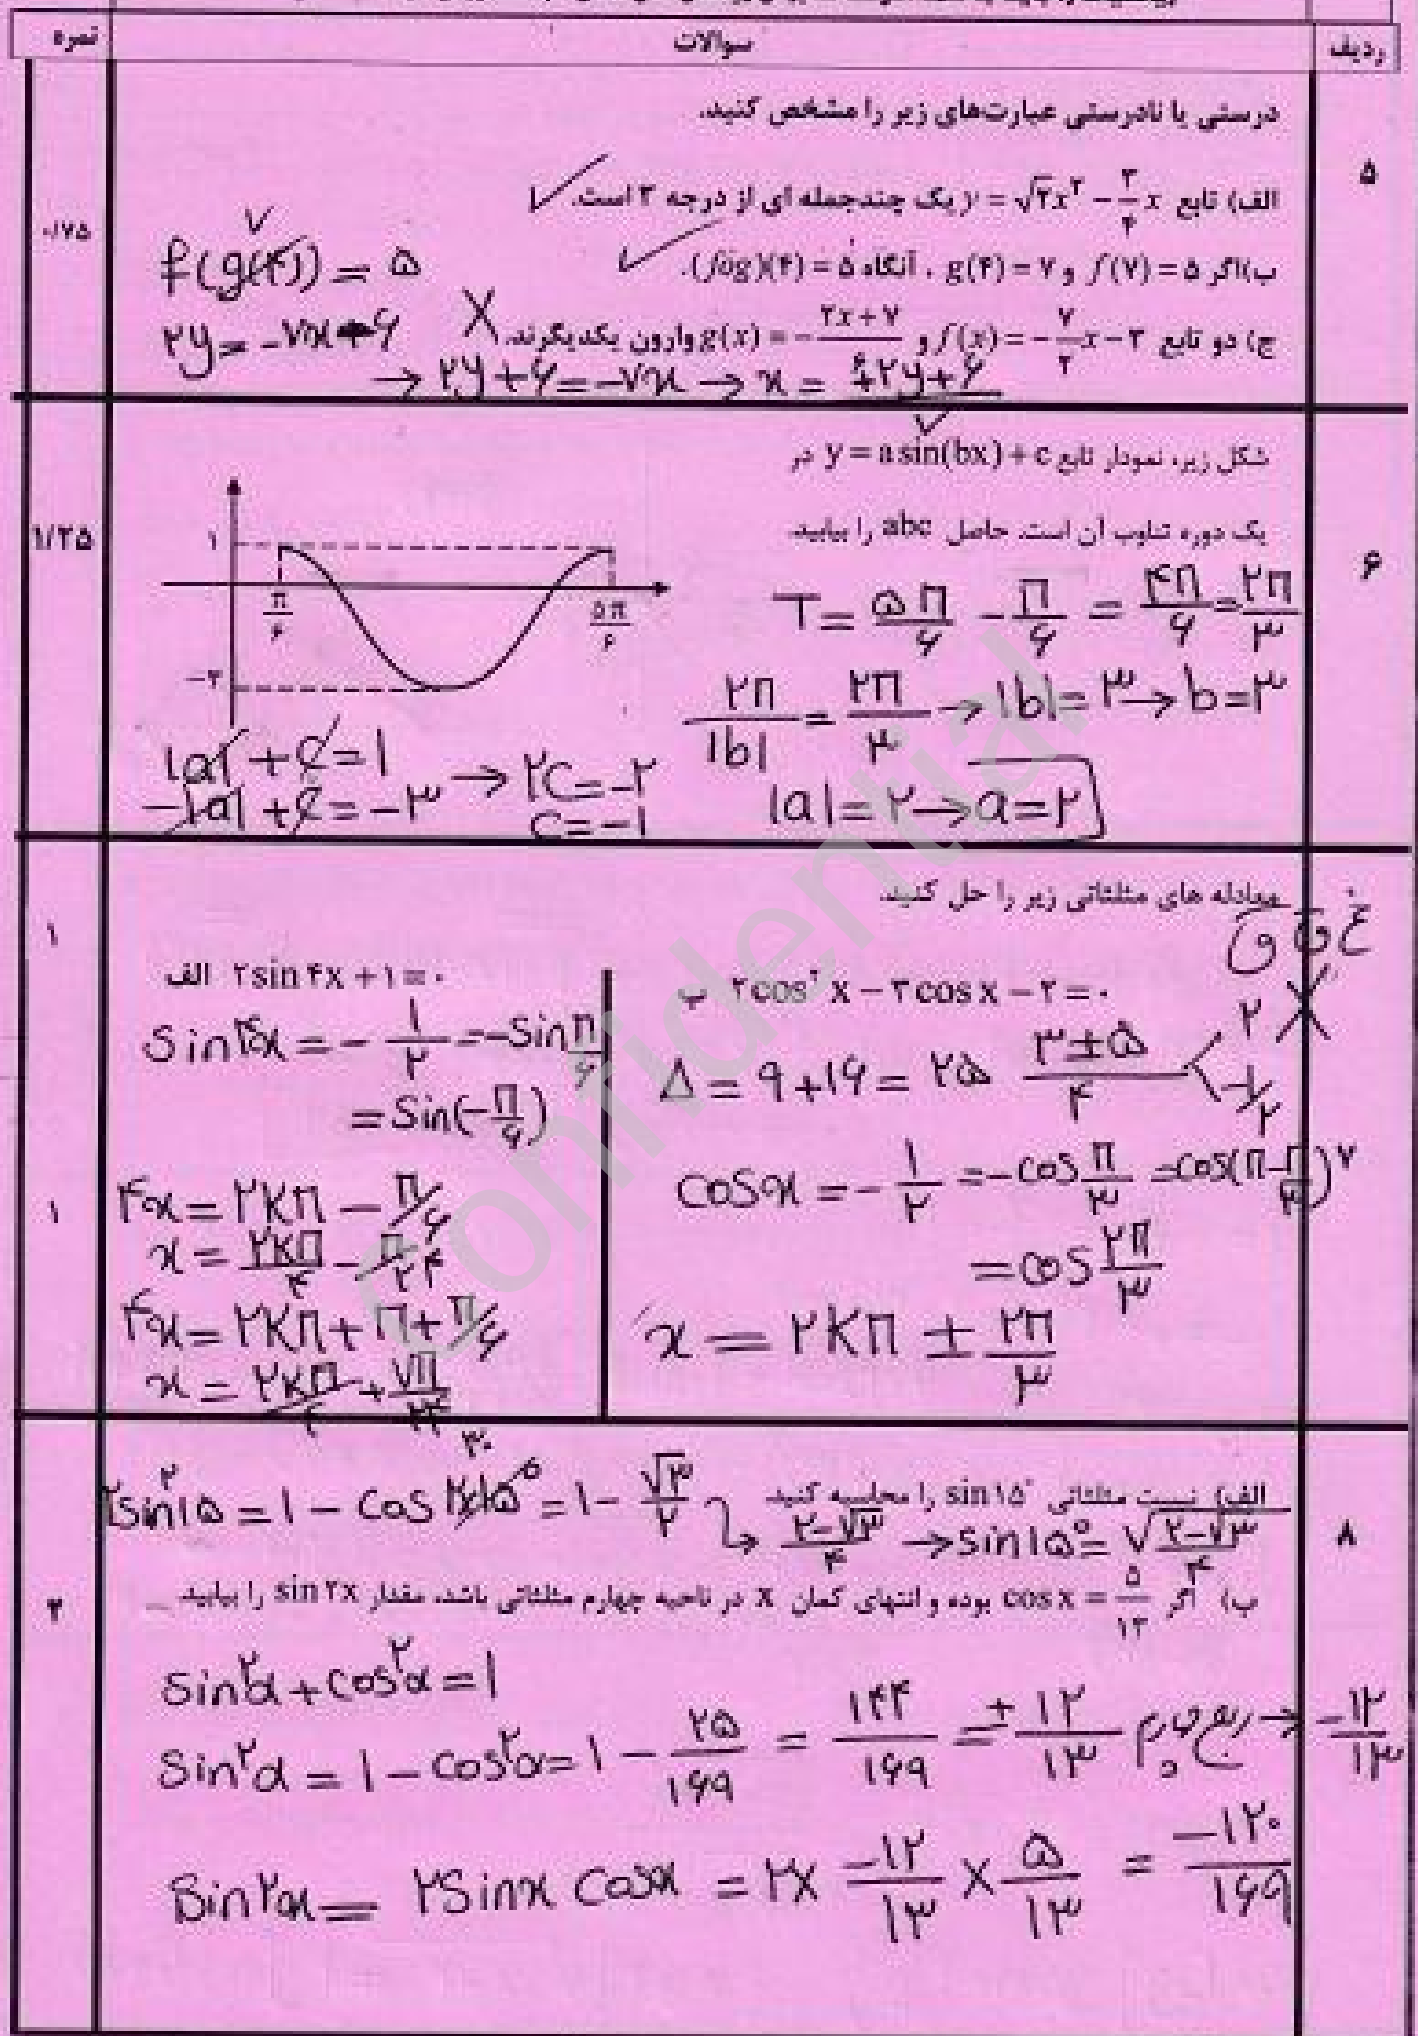 ردیف سوالات نمره
۵
درستی یا نادرستی عبارت‌های زیر را مشخص کنید.
الف) تابع y = √۲x² − ۳/۴ x یک چندجمله ای از درجه ۲ است. ✓
ب)اگر f(۷) = ۵ و g(۴) = ۷ ، آنگاه (fog)(۴) = ۵. ✓
ج) دو تابع f(x) = −۷/۲ x − ۳ و g(x) = − (۲x + ۷)/۶ وارون یکدیگرند. X
۰/۷۵
۷
f(g(۴)) = ۵
۲y = −۷x − ۶
→ ۲y + ۶ = −۷x → x = ۲y + ۶ / ۷
۶
شکل زیر، نمودار تابع y = a sin(bx) + c در
یک دوره تناوب آن است. حاصل abc را بیابید.
۱/۲۵
۱
π/۶
۵π/۶
−۳
T = ۵π/۶ − π/۶ = ۴π/۶ = ۲π/۳
۲π/|b| = ۲π/۳ → |b| = ۳ → b = ۳
|a| + c = ۱
−|a| + c = −۳ → ۲c = −۲
c = −۱
|a| = ۲ → a = ۲
معادله های مثلثاتی زیر را حل کنید.
غ ق ق
۱
الف ۲sin ۴x + ۱ = ۰
sin ۴x = − ۱/۲ = −sin π/۶
= sin(−π/۶)
۴x = ۲kπ − π/۶
x = ۲kπ/۴ − π/۲۴
۴x = ۲kπ + π + π/۶
x = ۲kπ/۴ + ۷π/۲۴
۱
ب ۲cos² x − ۳cos x − ۲ = ۰
Δ = ۹ + ۱۶ = ۲۵ ۳±۵/۴ ۲ X −۱/۲
cos x = − ۱/۲ = −cos π/۳ = cos(π − π/۳)
= cos ۲π/۳
x = ۲kπ ± ۲π/۳
۷
۸
الف) نسبت مثلثاتی sin ۱۵° را محاسبه کنید
۲sin²۱۵ = ۱ − cos ۲×۱۵° = ۱ − √۳/۲
۳۰
۲−√۳/۴ → sin ۱۵° = √(۲−√۳/۴)
ب) اگر cos x = ۵/۱۳ بوده و انتهای کمان x در ناحیه چهارم مثلثاتی باشد، مقدار sin ۲x را بیابید
۲
sin²α + cos²α = ۱
sin²α = ۱ − cos²α = ۱ − ۲۵/۱۶۹ = ۱۴۴/۱۶۹ = ± ۱۲/۱۳ ربع چهارم → −۱۲/۱۳
sin ۲x = ۲ sin x cos x = ۲ × −۱۲/۱۳ × ۵/۱۳ = −۱۲۰/۱۶۹
Confidential